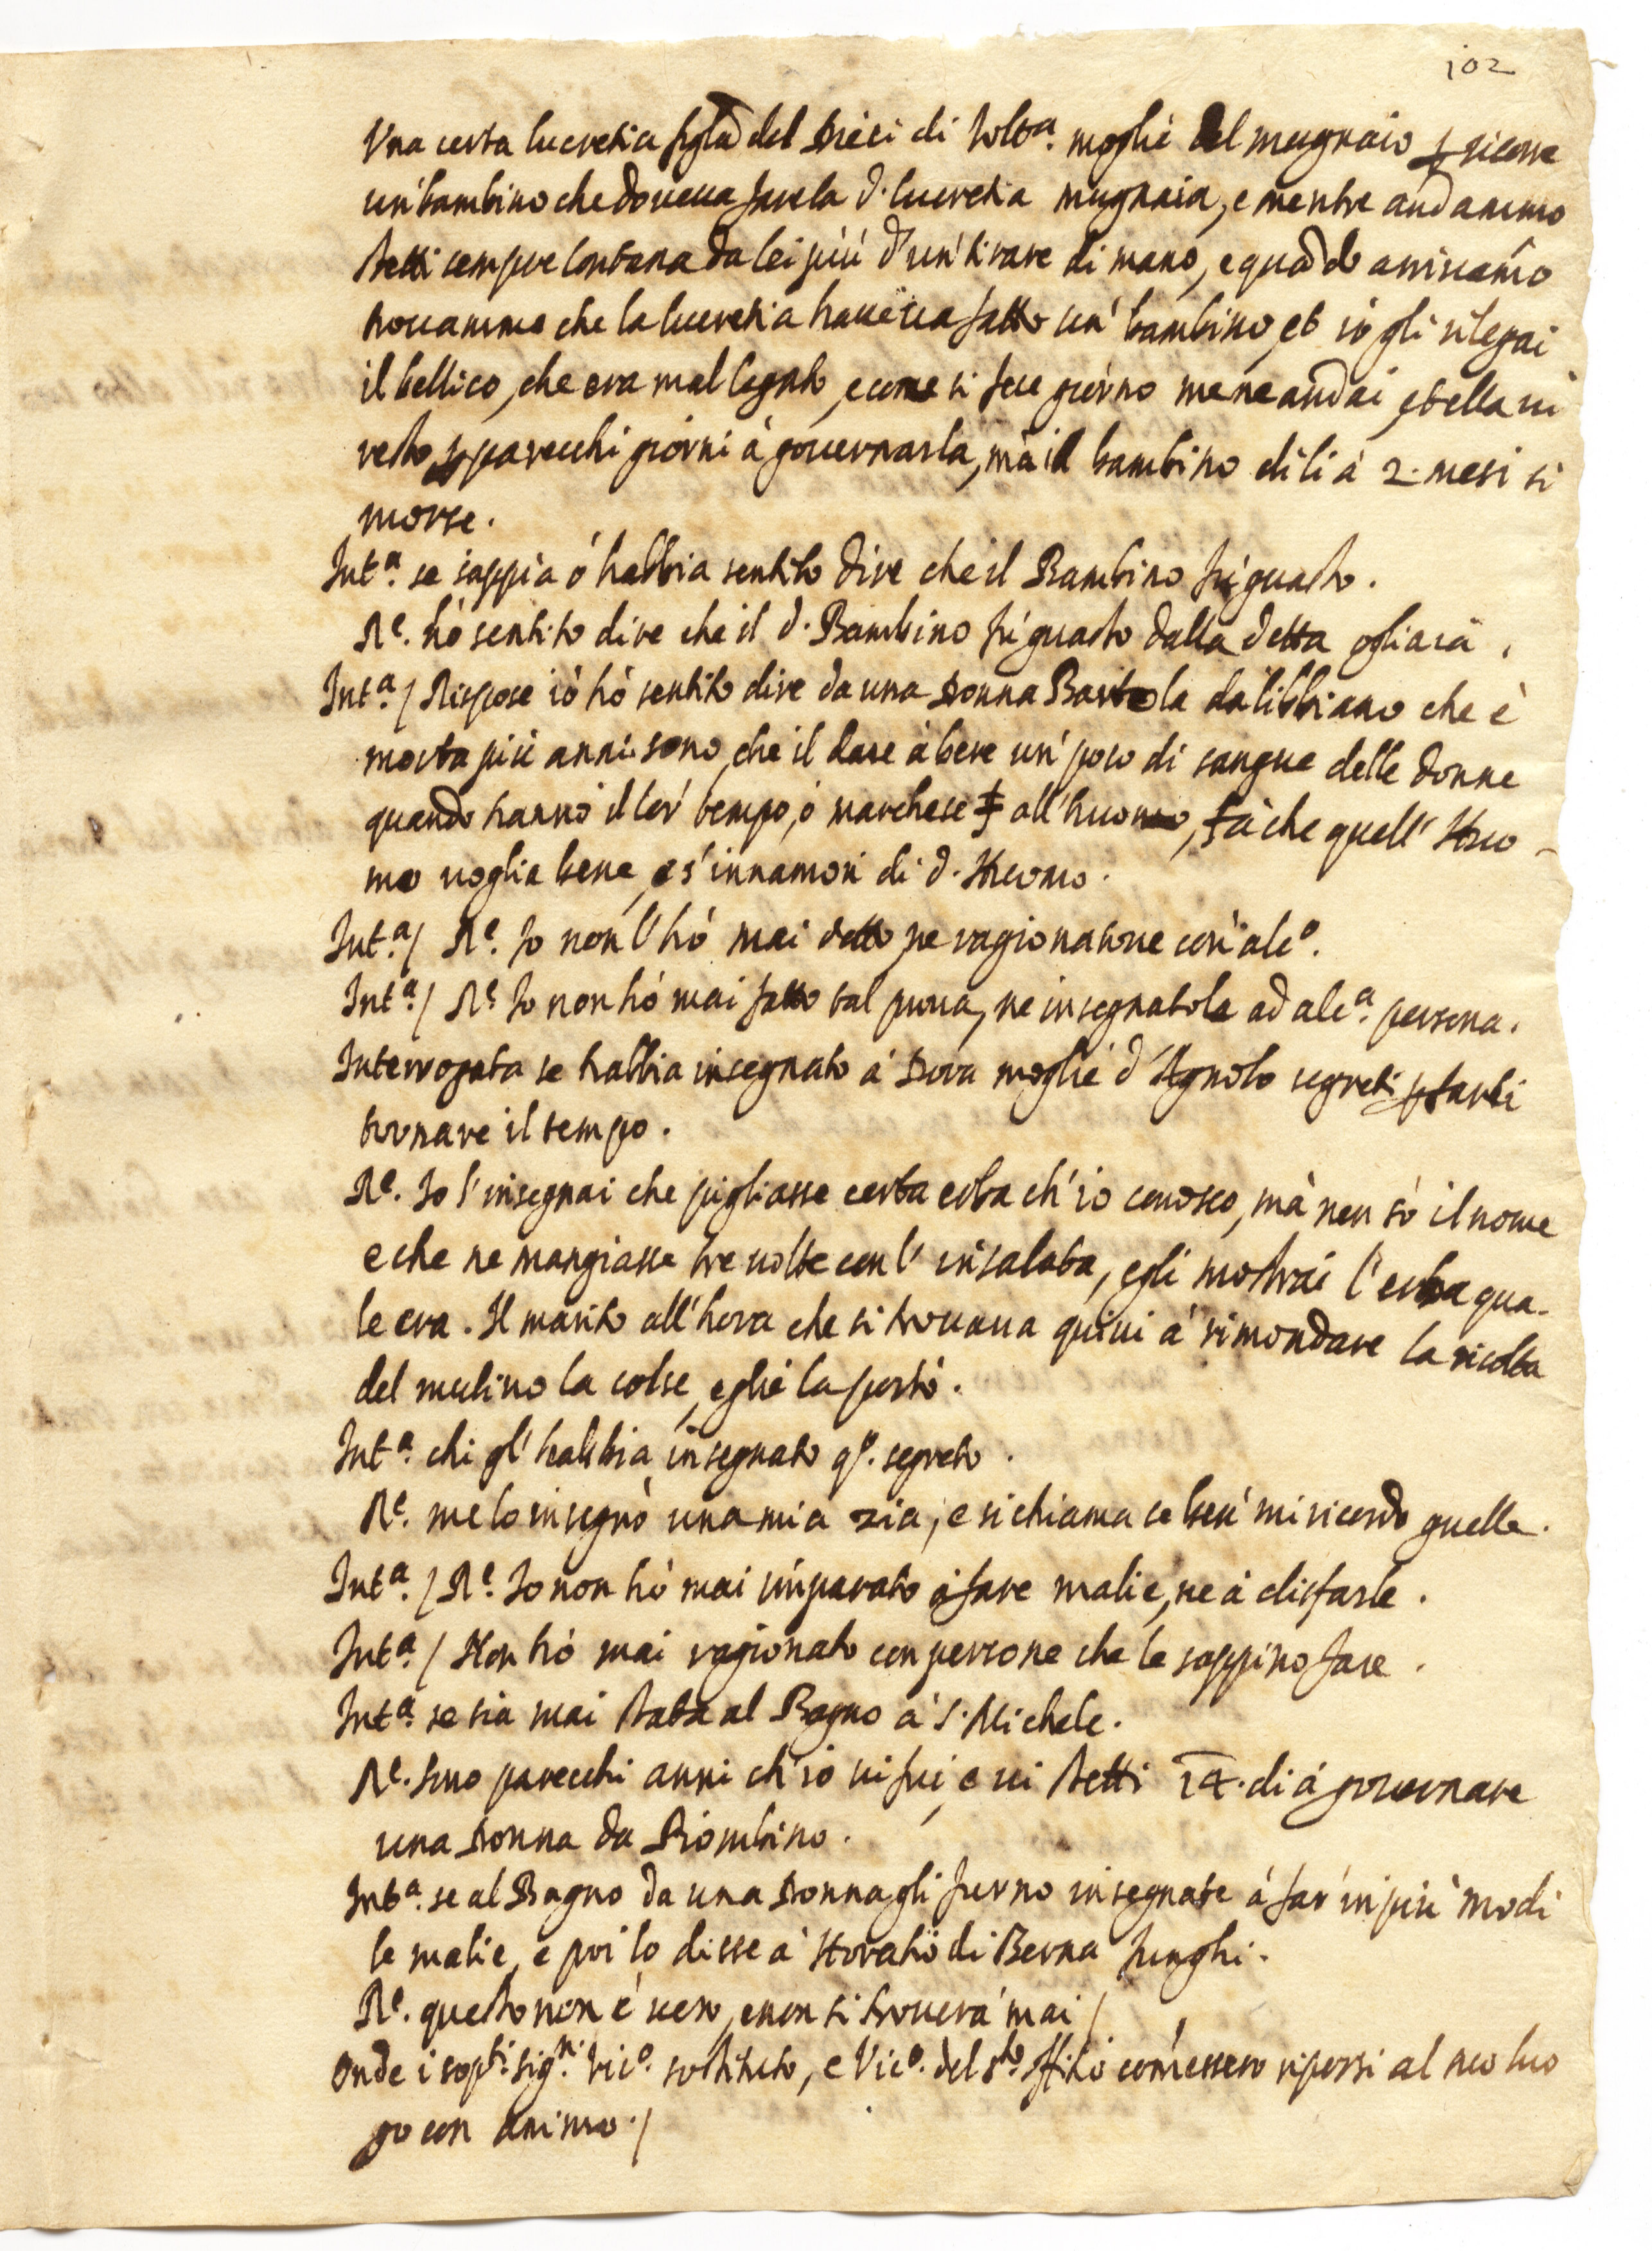 102
Una certa lucretia figla del Dieci di Volt.ª moglie del mugnaio p ricorre
un' bambino che doueua fare la d. lucretia mugnaia, e mentre andammo
stetti sempre lontana da lei più d'un' tirare di mano, e quado arriuamo
trouammo che la lucretia haueua fatto un' bambino, et io gli rilegai
il bellico, che era mal legato, e come si fece giorno me ne andai, et ella ui
resto p parecchi giorni à gouernarla, mà il bambino di li à 2. mesi si
morse.
Int.ª se sappia ò habbia sentito dire che il Bambino fù guasto.
R.e hò sentito dire che il d. Bambino fù guasto dalla detta ogliaia.
Int.ª / Rispose iò hò sentito dire da una Donna Bartola da libbiano che è
morta più anni sono, che il dare à bere un' poco di sangue delle donne
quando hanno il lor' tempo, ò marchese all'huomo, fà che quell' Huo-
mo uoglia bene, e s'innamori di d. Huomo.
Int.ª / R.e Io non l'hò mai detto ne ragionatone con' alc.º
Int.ª / R.e Io non hò mai fatto tal proua, ne insegnatola ad alc.ª persona.
Interrogata se habbia insegnato à Dora moglie d'Agnolo segreti p farli
tornare il tempo.
R.e Io l'insegnai che pigliasse certa erba ch'io conosco, mà non sò il nome
e che ne mangiasse tre uolte con l'insalata, e gli mostrai l'erba qua-
le era. Il marito all'hora che si trouaua quiui à rimondare la ricolta
del mulino la colse, e glie la portò.
Int.ª chi gl'habbia insegnato q.º segreto.
R.e me lo insegnò una mia zia, e si chiama se ben' mi ricordo guelle.
Int.ª / R.e Io non hò mai imparato à fare malie, ne à disfarle.
Int.ª / Non hò mai ragionato con persone che le sappino fare.
Int.ª se sia mai stata al Bagno à S. Michele.
R.e Sono parecchi anni ch'io ui fui, e ui stetti 14. di à gouernare
una Donna da Piombino.
Int.ª se al Bagno da una Donna gli furno insegnate à far' in più modi
le malie, e poi lo disse à Horatio di Berna funghi.
R.e questo non è uero, e non si trouerà mai /
Onde i sop.ti sig.ri Vic.º sostituto, e Vic.º del S.to Offitio comessero riporsi al suo luo
go con animo. /